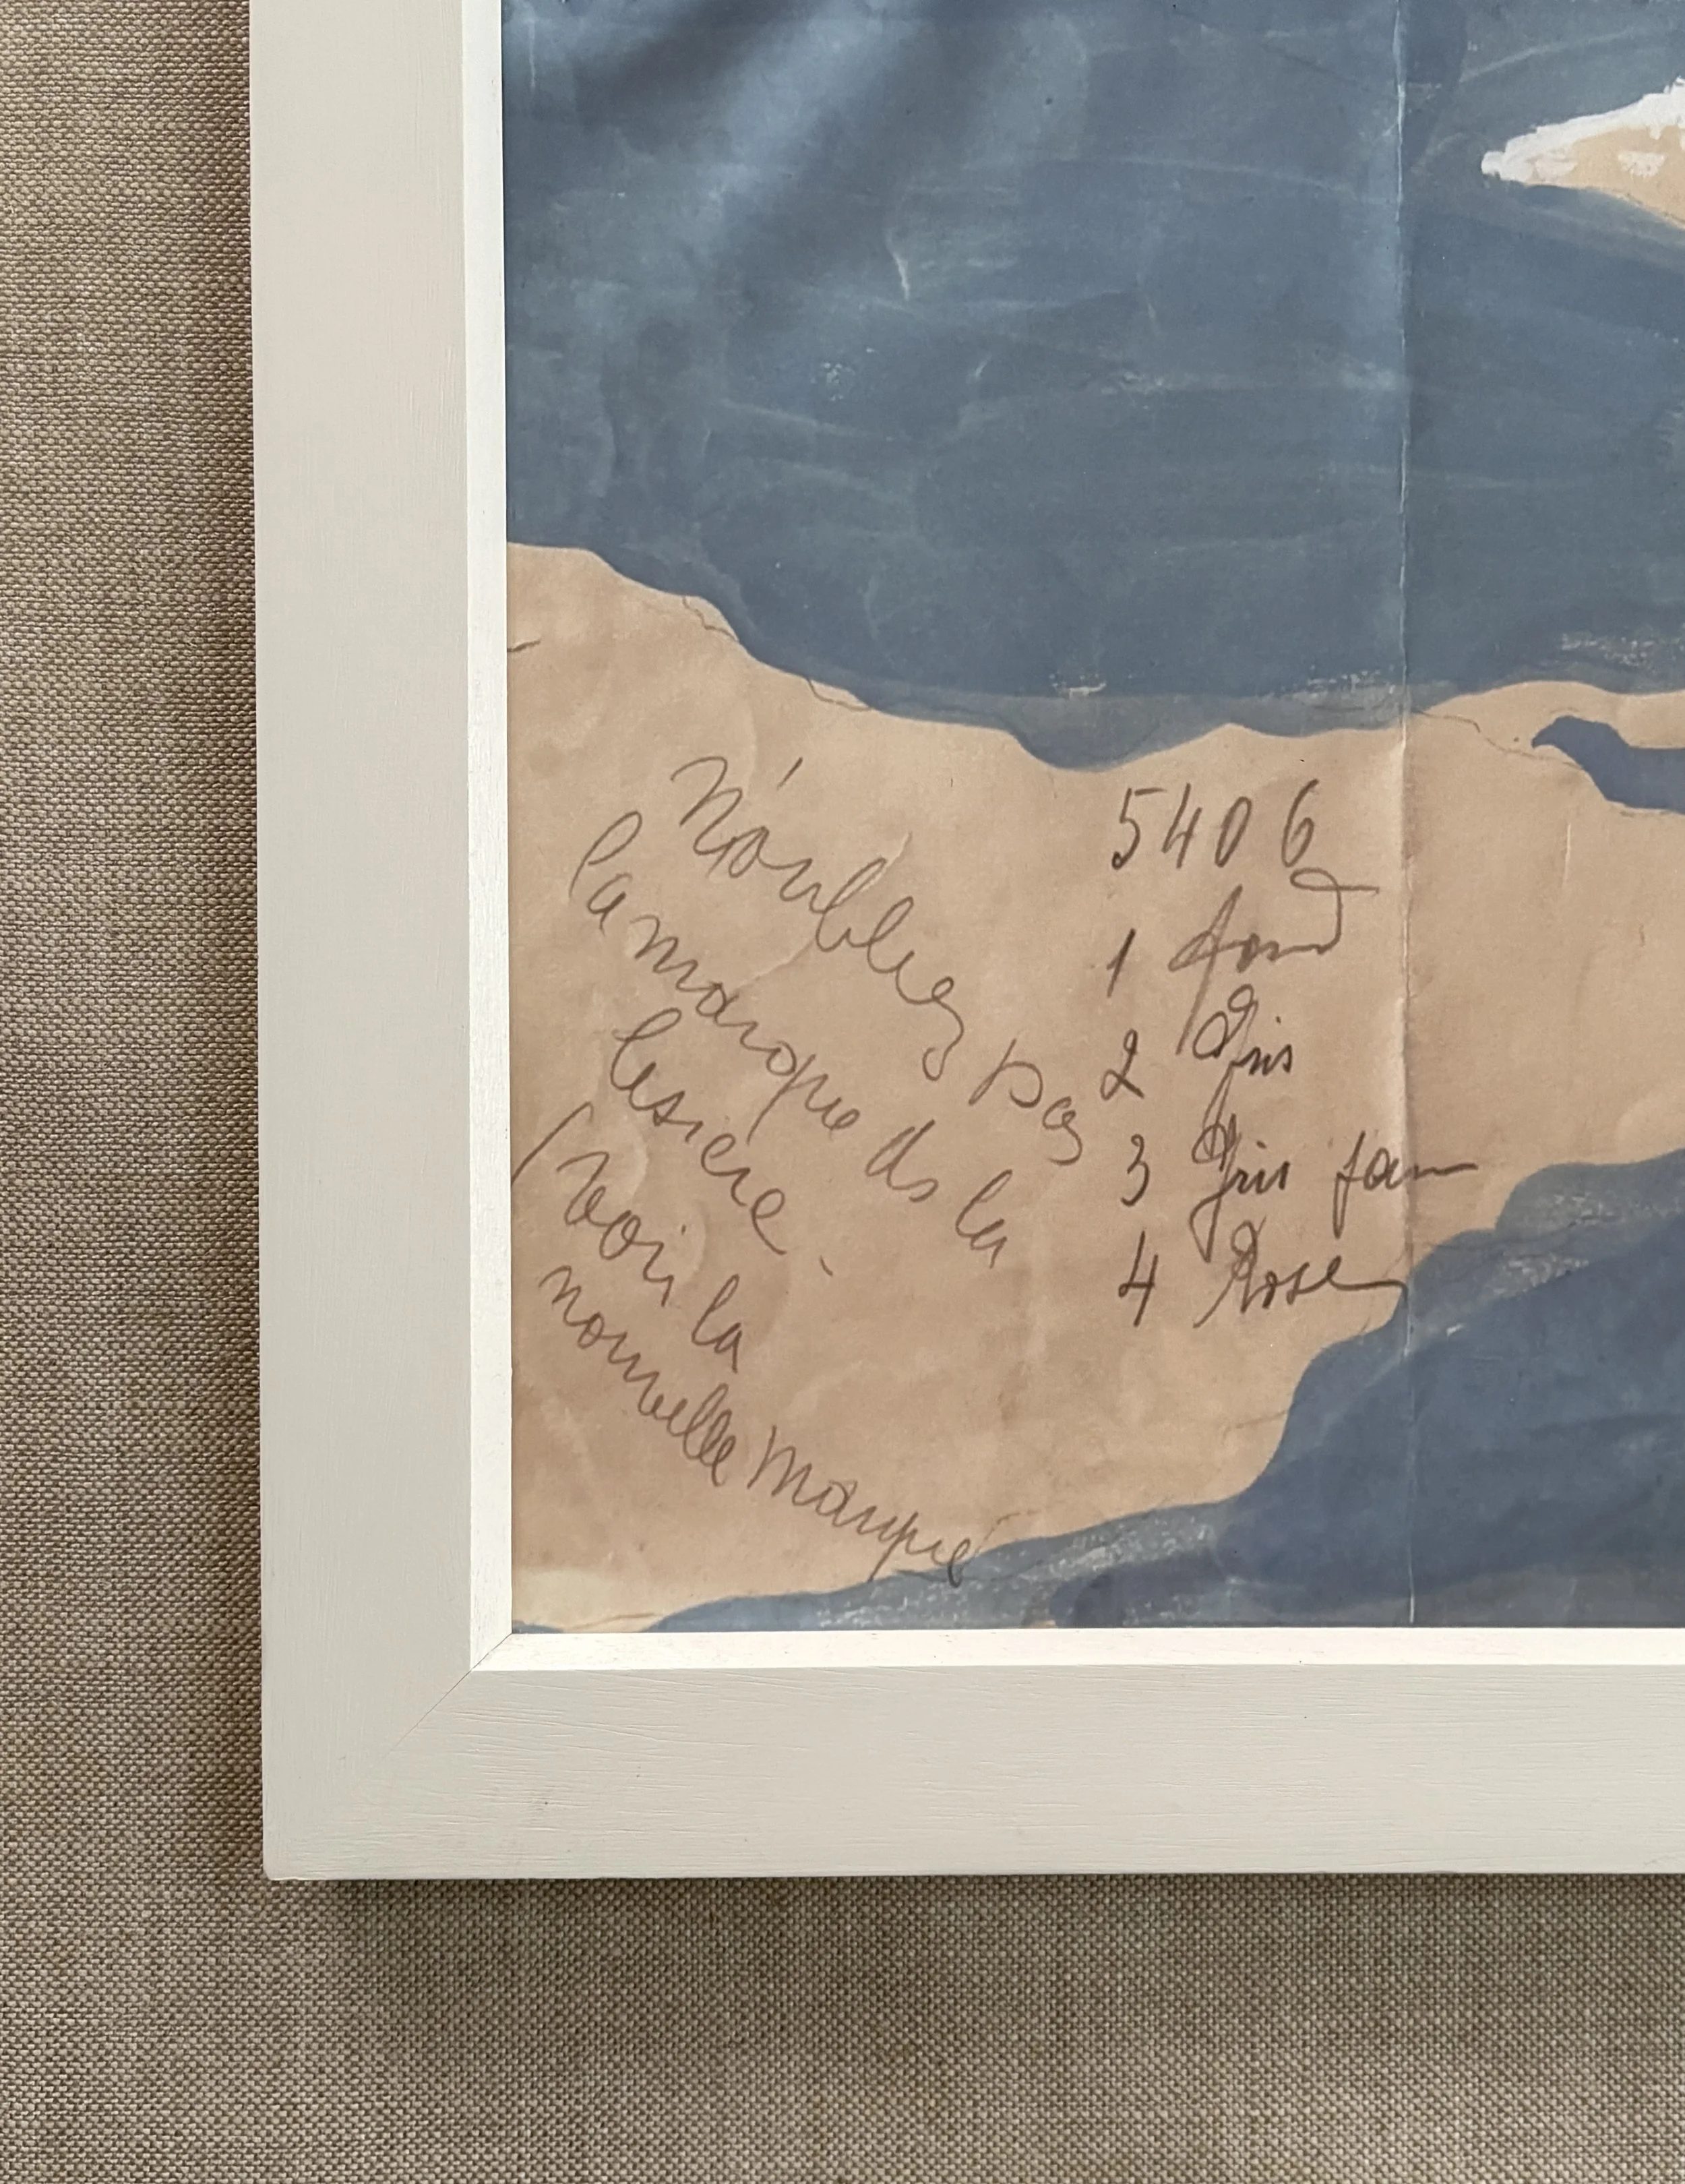 N'oubliez pas
la marque de la
lisière.
(Voir la
nouvelle marque
5406
1 fond
2 Gris
3 Gris
4 Rose